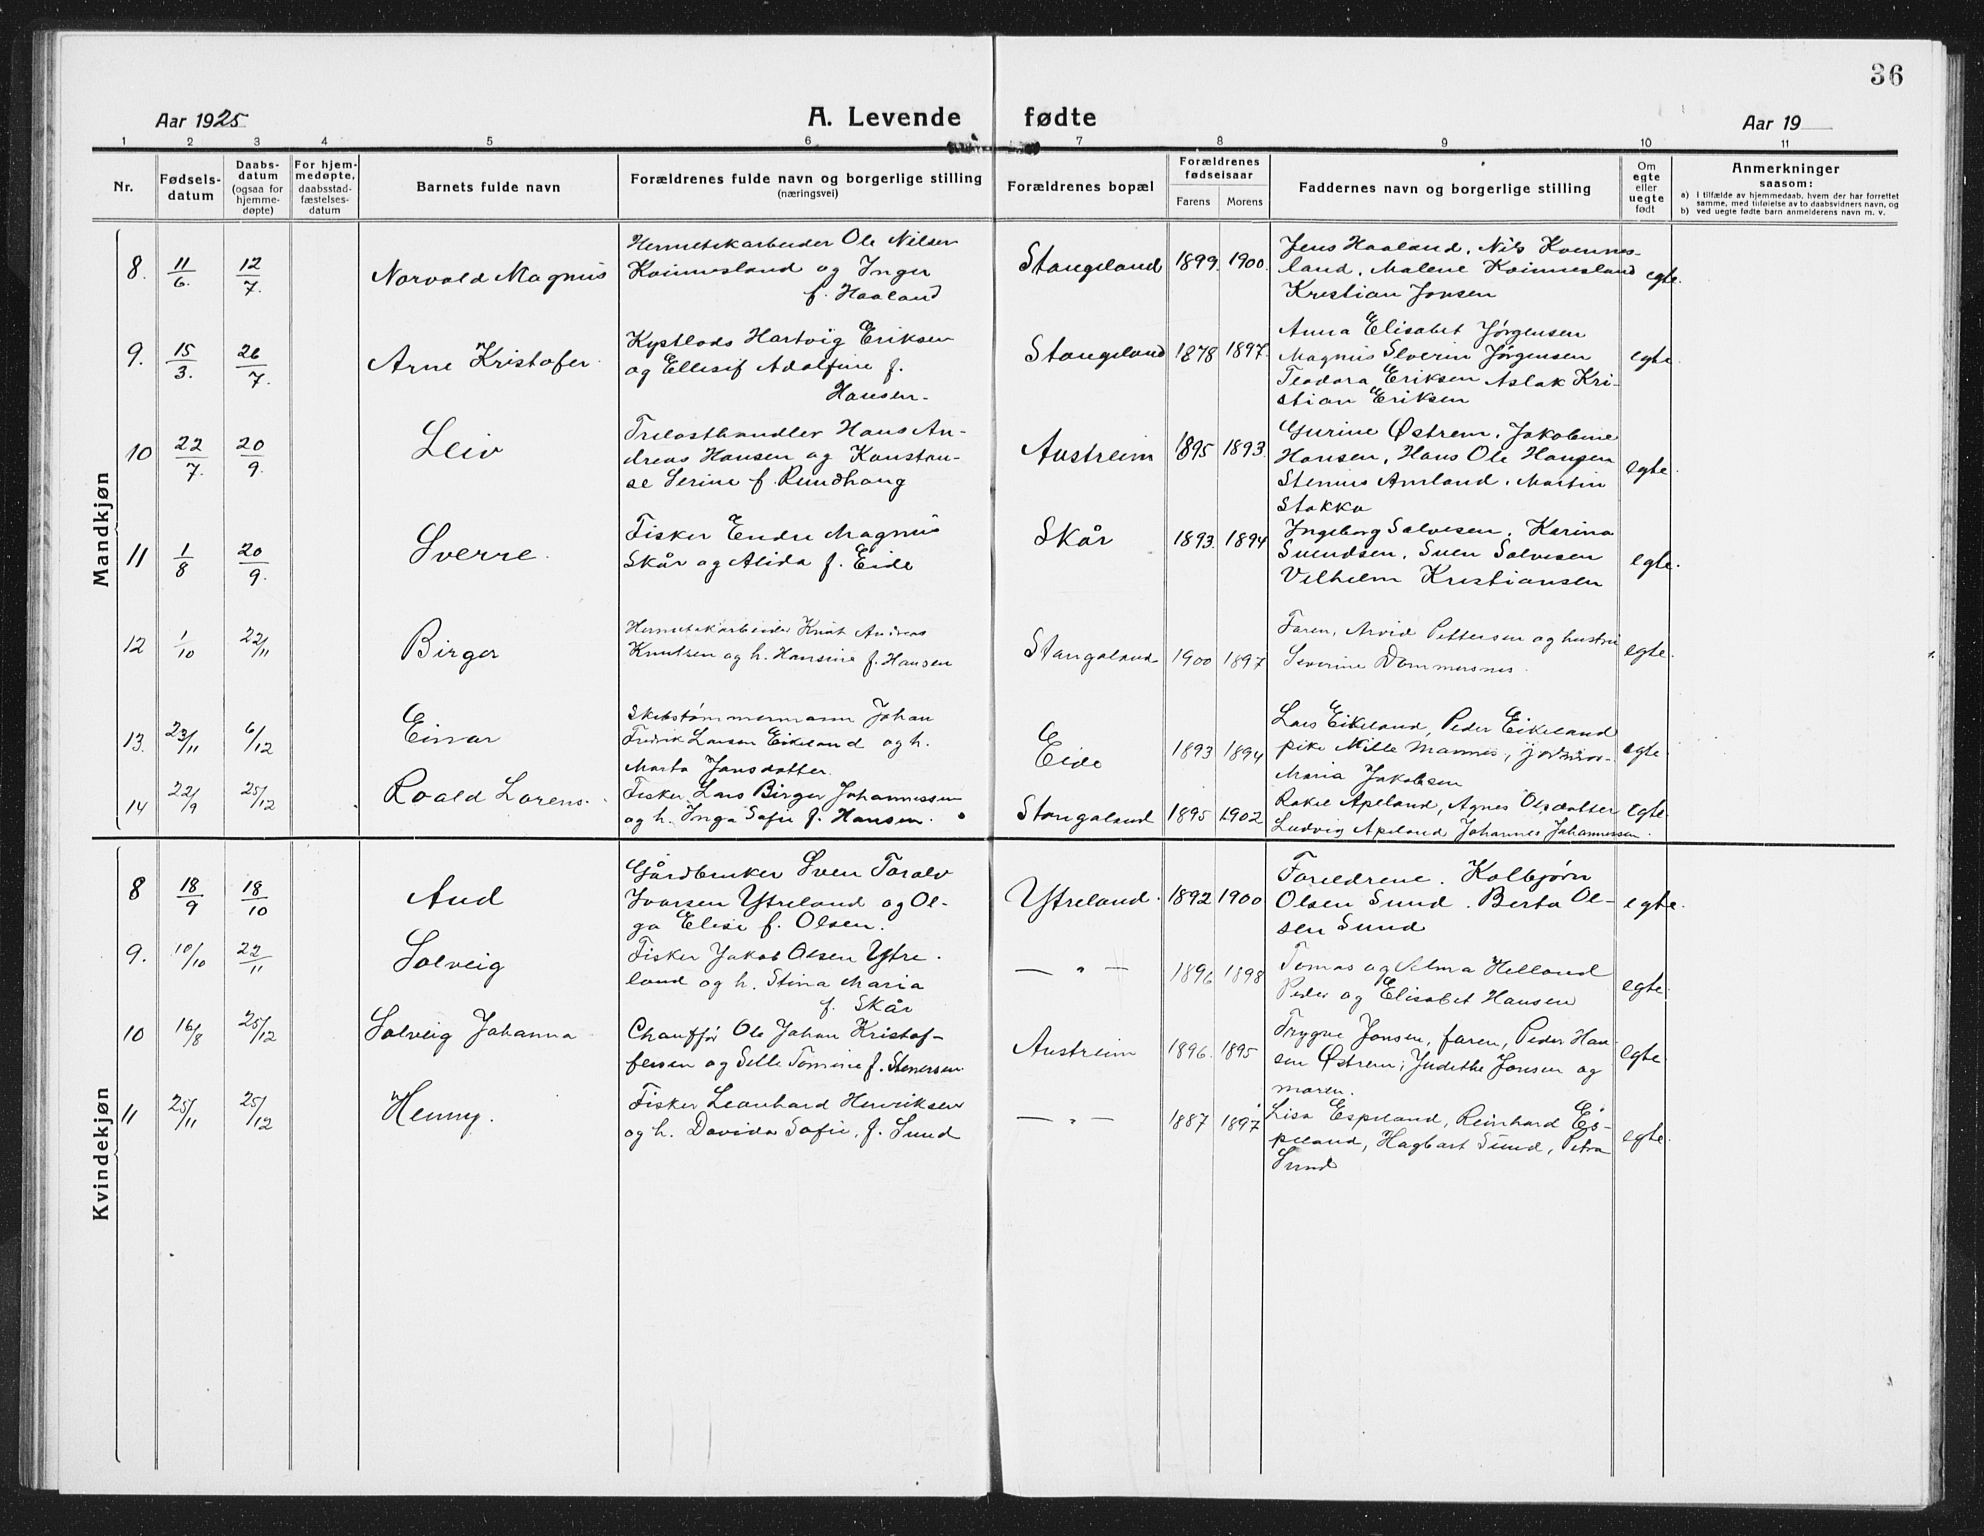 36
Aar 1925
A. Levende fødte
Aar 19
1 2 3 4 5 6 7 8 9 10 11
Nr.
Fødsels-
datum
Daabs-
datum
(ogsaa for
hjemme-
døpte)
For hjem-
medøpte,
daabsstad-
fæstelses-
datum
Barnets fulde navn
Forældrenes fulde navn og borgerlige stilling
(næringsvei)
Forældrenes bopæl
Forældrenes
fødselsaar
Farens Morens
Faddernes navn og borgerlige stilling
Om
egte
eller
uegte
født
Anmerkninger
saasom:
a) I tilfælde av hjemmedaab, hvem der har forrettet
samme, med tilføielse av to daabsvidners navn, og
b) ved uegte fødte barn anmelderens navn m. v.
Mandkjøn
8. 11/6. 12/7. Norvald Magnus
Hermetikarbeider Ole Nilsen
Kvinnesland og Inger
f. Haaland
Stangeland 1899. 1900.
Jens Haaland, Nils Kvinnes-
land, Malene Kvinnesland
Kristian Jonsen
egte.
9. 15/3. 26/7. Arne Kristofer.
Kystlods Hartvig Eriksen
og Ellesif Adolfine f.
Hansen.
Stangeland 1878 1897.
Anna Elisabet Jørgensen
Magnus Severin Jørgensen
Teodora Eriksen Aslak Kri-
stian Eriksen
egte.
10 22/7. 20/9. Leiv
Trelasthandler Hans An-
dreas Hansen og Konstan-
se Serine f. Rundhaug
Austreim 1895 1893.
Gurine Østrem, Jakobine
Hansen, Hans Ole Hansen
Stenius Amland, Martin
Stokka
egte.
11 1/8 20/9. Sverre.
Fisker Endre Magnus
Skår og Alida f. Eide
Skår 1893. 1894
Ingeborg Salvesen, Karina
Svendsen, Sven Salvesen
Vilhelm Kristiansen
egte.
12 1/10 22/11 Birger
Hermetikarbeider Knut Andreas
Knutsen og h. Hansine f. Hansen
Stangaland 1900 1897
Faren, Arvid Pettersen og hustru
Severine Dommersnes.
egte.
13. 23/11 6/12 Einar
Skibstømmermann Johan
Fredrik Larsen Eikeland og h.
Marta Jansdatter.
Eide 1893 1894
Lars Eikeland, Peder Eikeland
pike Mille Mannes,
Maria Jakobsen
egte.
14 22/9 25/12 Roald Lorens.
Fisker Lars Birger Johannessen
og h. Inga Sofie f. Hansen.
Stangaland 1895 1902
Rakel Apeland, Agnes Olsdatter
Ludvig Apeland Johannes Johannessen.
egte.
Kvindekjøn
8 18/9 18/10 Aud
Gårdbruker Sven Toralv
Ivarsen Ytreland og Ol-
ga Elise f. Olsen.
Ytreland. 1892 1900
Foreldrene. Kolbjørn
Olsen Sund. Berta Ol-
sen Sund
egte.
9. 10/10 22/11 Solveig
Fisker Jakob Olsen Ytre-
land og h. Stina Maria
f. Skår
— " — 1896 1898
Tomas og Alma Helland
Peder og Elisabet Hansen
egte.
10 16/8 25/12 Solveig Johanna
Chauffør Ole Johan Kristof-
fersen og Sille Tomine f. Stenersen.
Austreim 1896. 1895
Trygve Jonsen, faren, Peder Han-
sen Østrem, Judithe Jonsen og
moren.
egte.
11 25/11 25/12 Henny.
Fisker Leonhard Henriksen
og h. Davida Sofie, f. Sund
— " — 1887 1897
Lisa Espeland, Reinhard Es-
peland, Hagbart Sund, Petra
Sund
egte.